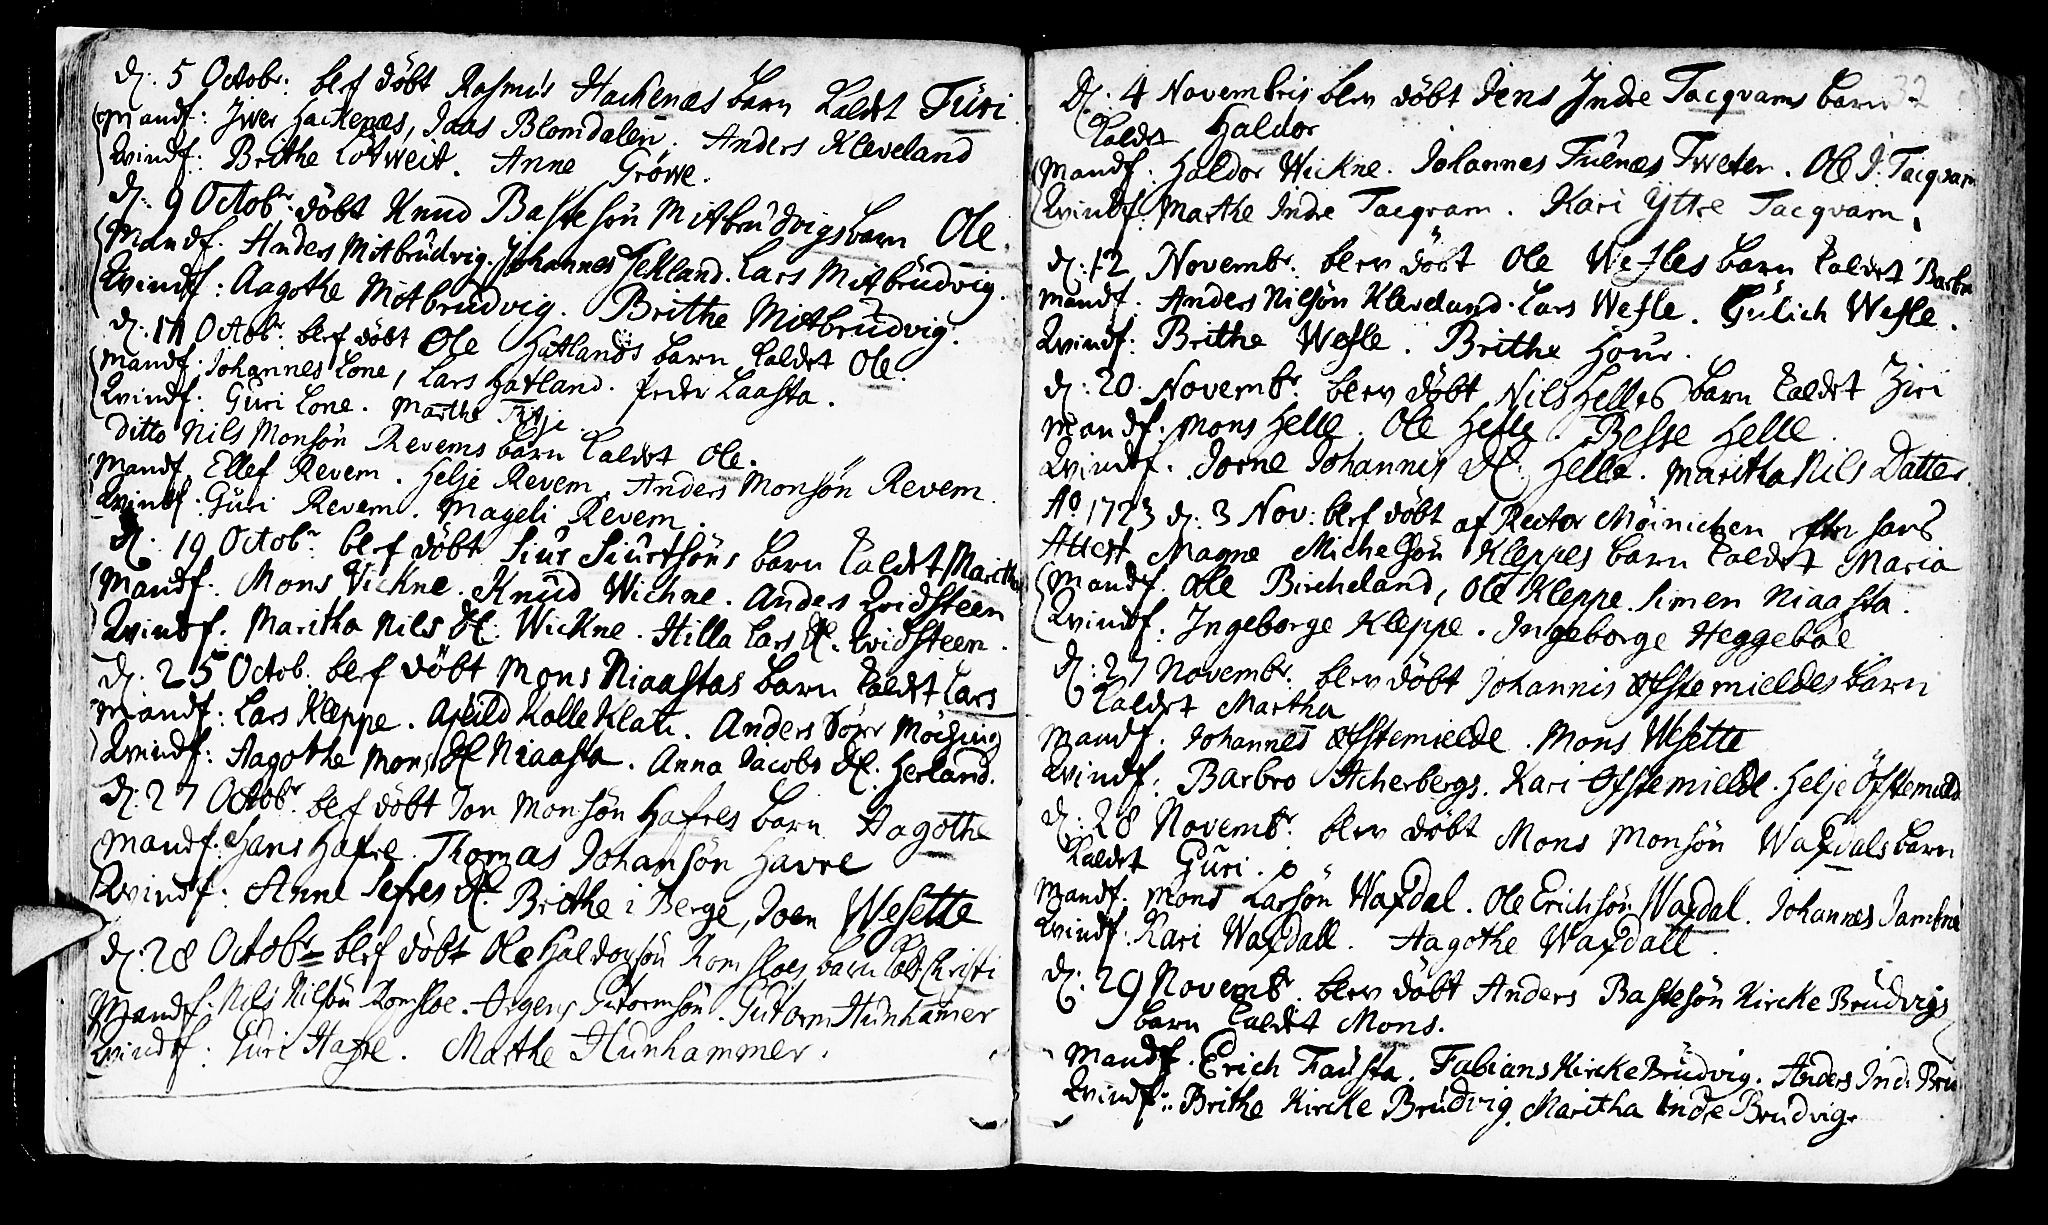 d: 5 Octobr: blef döbt Rasmus Hackenæs barn kaldet Turi.
Mandf: Iwer Hackenæs, Jaas Blomdalen. Anders Kleveland
Qvindf: Brithe Lotweit. Anne Gröwe.
d: 9 Octobr: döbt Knud Bastesön Mitbrudvigs barn Ole.
Mandf. Anders Mitbrudvig. Johannes Jekland. Lars Mitbrudvig.
Qvindf: Aagothe Mitbrudvig. Brithe Mitbrudvig.
d: Octobr: blef döbt Ole Hatlands barn kaldet Ole.
Mandf: Johannes Lone, Lars Hatland. Peder Laasta.
Qvindf: Guri Lone. Marthe
Ditto Nils Monsön Revems barn kaldet Ole.
Mandf. Ellef Revem. Helje Revem. Anders Monsön Revem.
Qvindf. Guri Revem. Mageli Revem.
d. 19 Octobr: blef döbt Siur Siurtsöns barn kaldet Maritha
Mandf: Mons Vickne. Knud Wichne. Anders Qvidsteen
Qvindf. Maritha Nils Dl: Wickne. Hilla Lars Dl. Qvidsteen.
d: 25 Octob. blef döbt Mons Niaastas barn kaldet Lars
Mandf: Lars Kleppe. Arild Kolle Klati. Anders
Qvindf: Aagothe Mons Dl Niaasta. Anna Jacobs Dl: Herland.
d: 27 Octobr. blef döbt Jon Monsön Hafres barn Aagothe
Mandf: Hans Hafre. Thomas Johansön Havre
Qvindf: Anne Sefres Dl. Brithe i Berge, Joen Wesette
d: 28 Octobr blef döbt Ole Haldorsön Romsloes barn kaldt Christi
Mandf: Nils Nilsön Romsloe. Örgens Gutormsön. Gutorm Hunhamer
Qvindf: Guri Hafre. Marthe Hunhammer.
32
D: 4 Novembris blev döbt Jens Indre Tacqvams barn
kaldet Haldor
Mandf. Haldor Wickne. Johannes Tuenæs Tweter. Ole I: Tacqvam
Qvindf. Marthe Indre Tacqvam. Kari Yttre Tacqvam.
d: 12 Novembr: blev döbt Ole Wesles barn kaldet Barbro
Mandf. Anders Nilsön Kleveland. Lars Wesle. Gulich Wesle.
Qvindf: Brithe Wesle. Brithe Hour.
d: 20 Novembr. blev döbt Nils Helles barn kaldet Ziri
Mandf: Mons Helle. Ole Helle. Besse Helle.
Qvindf. Jorne Johannis Dl: Helle. Maritha Nils Datter.
Ao 1723 d: 3 Nov: blef döbt af Rector Möinichen efter hans
Attest Magne Michelsön Kleppes barn kaldet Maria
Mandf. Ole Bircheland, Ole Kleppe. Simen Niaasta.
Qvindf: Ingeborge Kleppe. Ingeborge Heggeböe
d: 27 Novembr: blev döbt Johannis Östemieldes barn
kaldet Martha
Mandf. Johannes Östemielde. Mons Wesette
Qvindf: Barbro Acherbergs. Kari Östemielde. Helje Östemield
d: 28 Novembr: blev döbt Mons Monsön Waxdals barn
kaldet Guri.
Mandf: Mons Larsön Waxdal. Ole Erichsön Waxdal. Johannes
Qvindf: Kari Waxdall. Aagothe Waxdall.
d: 29 Novembr. blev döbt Anders Bastesön Kircke Brudvigs
barn kaldet Mons.
Mandf. Erich Fausta. Fabians Kircke Brudvig. Anders Ind: Bru
Qvindf: Brithe Kircke Brudvig. Maritha Indre Brudvig.